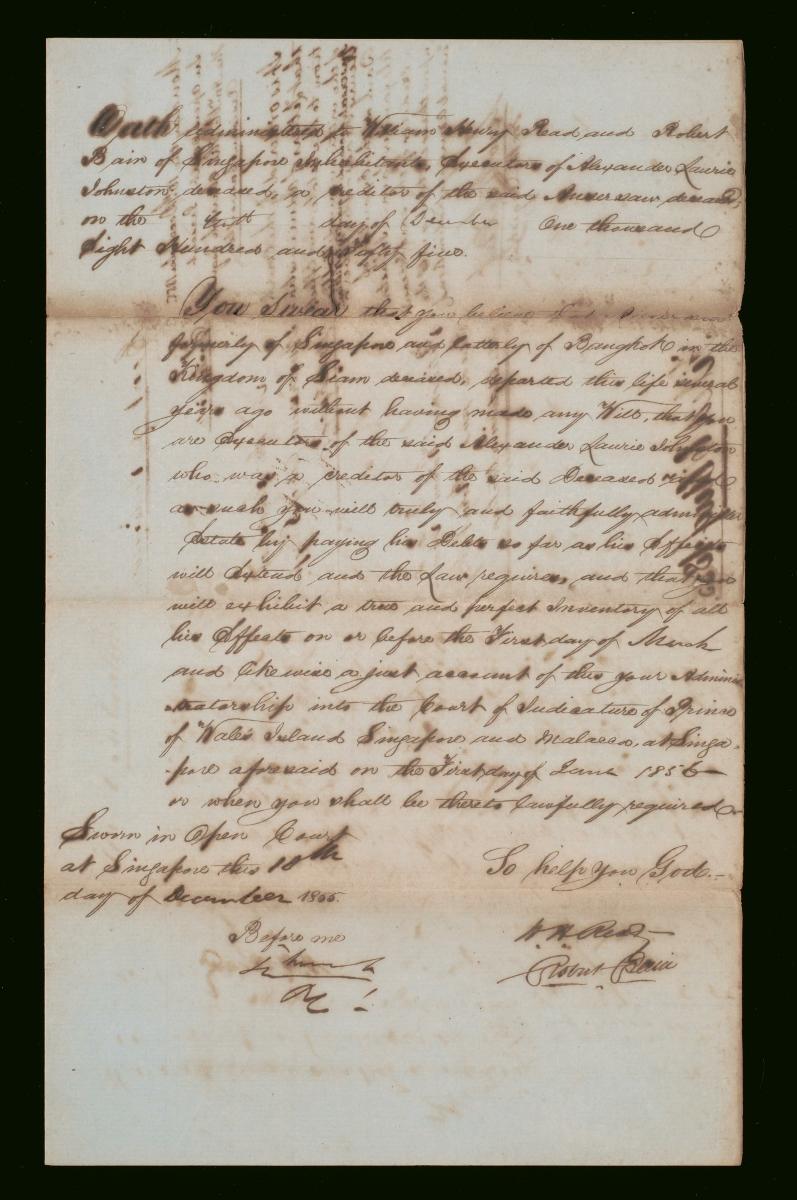 Oath administered to William Henry Read and Robert
Bain of Singapore Inhabitants, Executors of Alexander Laurie
Johnston deceased, a creditor of the said Anversaw deceased,
on the tenth day of December One thousand
Eight Hundred and Fifty five.
You Swear that you believe that
formerly of Singapore and latterly of Bangkok in the
Kingdom of Siam deceased, departed this life several
years ago without having made any Will, that you
are Executors of the said Alexander Laurie Johnston
who was a creditor of the said Deceased
as such you will truly and faithfully administer
Estate by paying his Debts so far as his Effects
will Extend and the Law requires, and that you
will exhibit a true and perfect Inventory of all
his Effects on or before the First day of March
and likewise a just account of this your Adminis
tratorship into the Court of Judicature of Prince
of Wales Island Singapore and Malacca, at Singa-
pore aforesaid on the First day of June 1856
or when you shall be thereto lawfully required
Sworn in Open Court
at Singapore this 10th
day of December 1855.
So help you God.
Before me
W. H. Read
Robert Bain